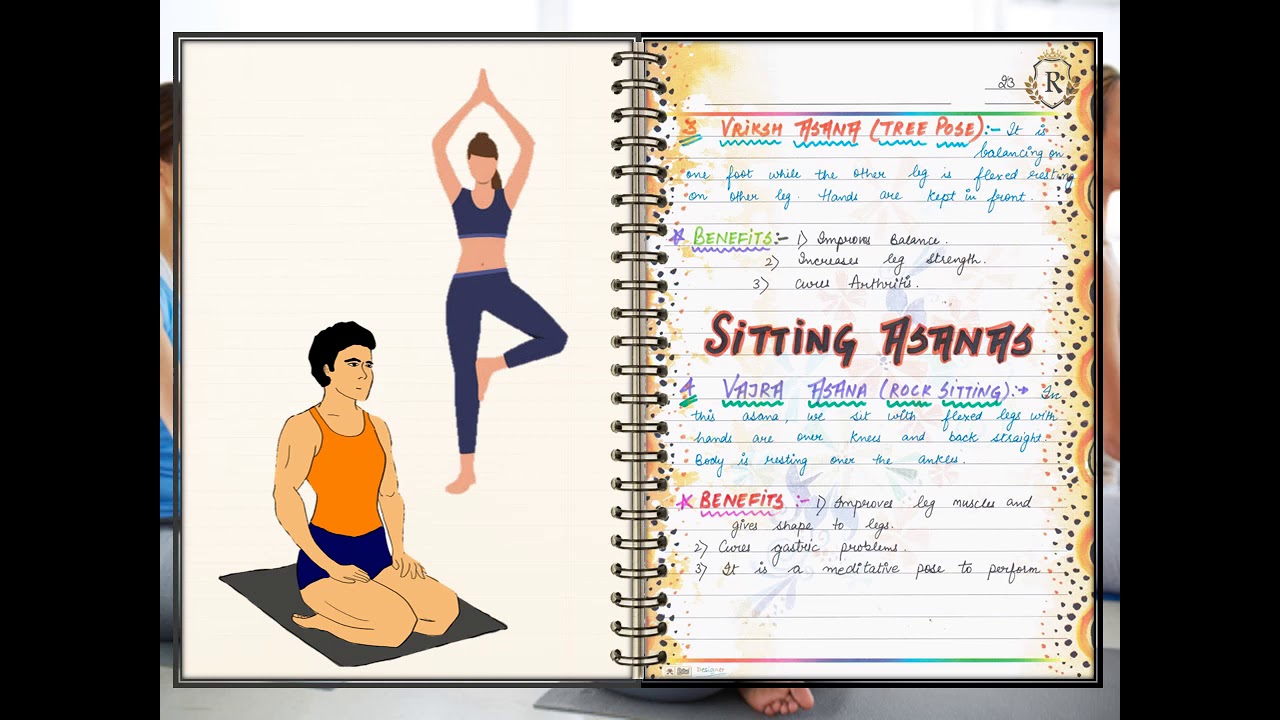 23
R
3 VRIKSH ASANA (TREE POSE):- It is
balancing on
one foot while the other leg is flexed resting
on other leg. Hands are kept in front.
BENEFITS:- 1) Improves Balance.
2) Increases leg Strength.
3) Cures Arthritis.
SITTING ASANAS
4 VAJRA ASANA (ROCK SITTING):→ In
this asana, we sit with flexed legs with
hands are over knees and back straight.
Body is resting over the ankles.
BENEFITS:- 1) Improves leg muscles and
gives shape to legs.
2) Cures gastric problems.
3) It is a meditative pose to perform
Designer